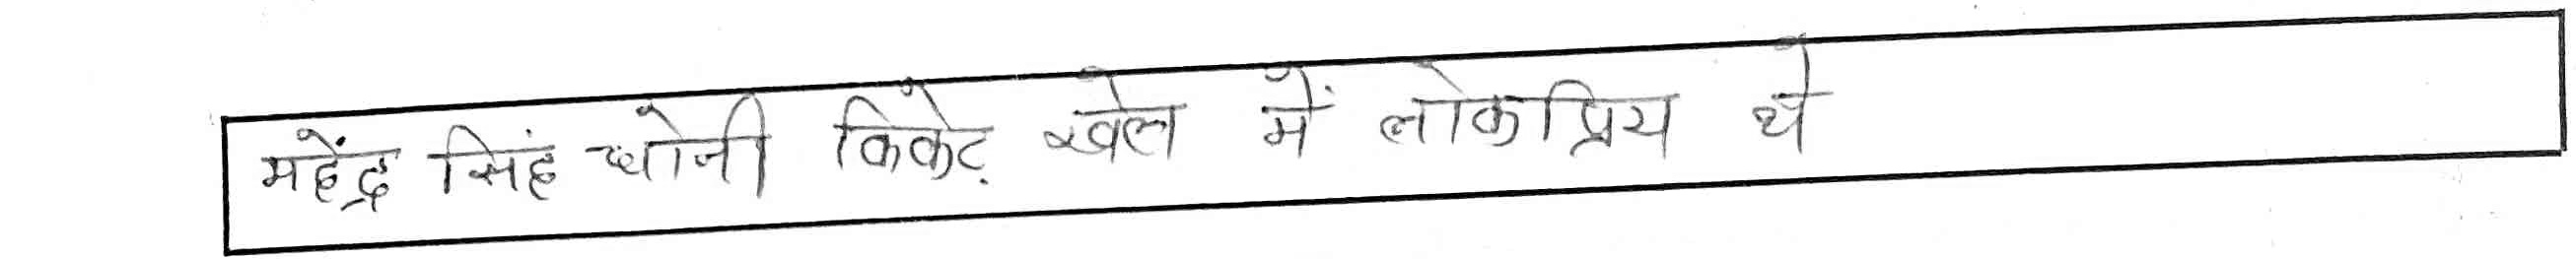 महेंद्र सिंह धोनी किकेट खेल में लोकप्रिय थे